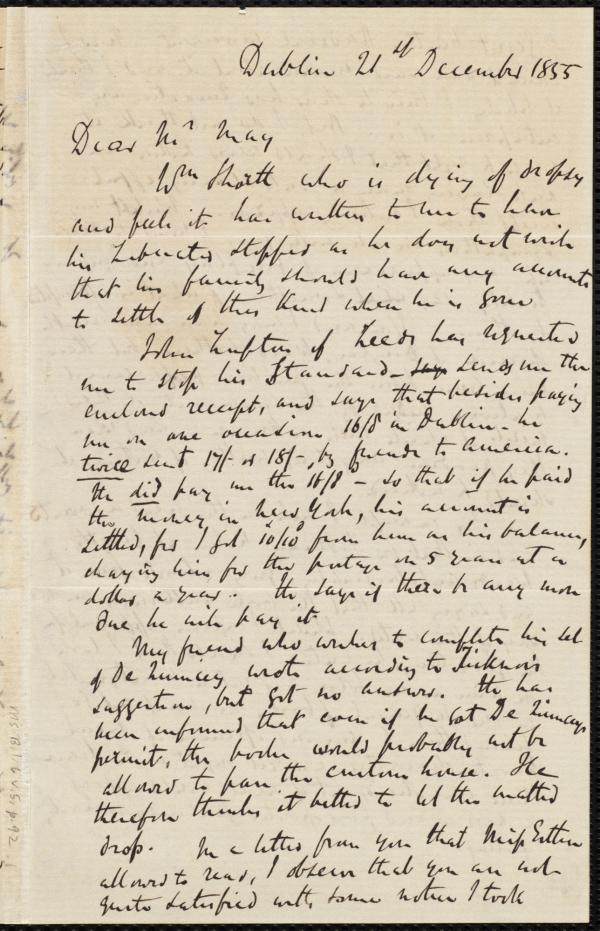 Dublin 21st December 1855
Dear Mr May
Wm Shortt who is dying of dropsy
and feels it has written to me to have
his Liberator stopped as he does not wish
that his family should have any accounts
to settle of this kind when he is gone
John Lupton of Leeds has requested
me to stop his Standard – says sends me the
enclosed receipt, and says that besides paying
me on one occasion 16/8 in Dublin – he
twice sent 17/- or 18/-, by friends to America.
He did pay me the 16/8 – so that if he paid
the money in New York, his account is
settled, for I got 10/10 from him as his balance,
charging him for the postage on 5 years at a
dollar a year. He says if there be any more
due he will pay it
My friend who wishes to complete his set
of De Quincey wrote according to Ticknor's
suggestion, but got no answer. He has
been informed that even if he got De Quincey's
permit, the books would probably not be
allowed to pass the custom house. He
therefore thinks it better to let the matter
drop. In a letter from you that Miss Estlin
allowed to read, I observe that you are not
quite satisfied with some notice I took
MS.B.1.6 v.5, p.92